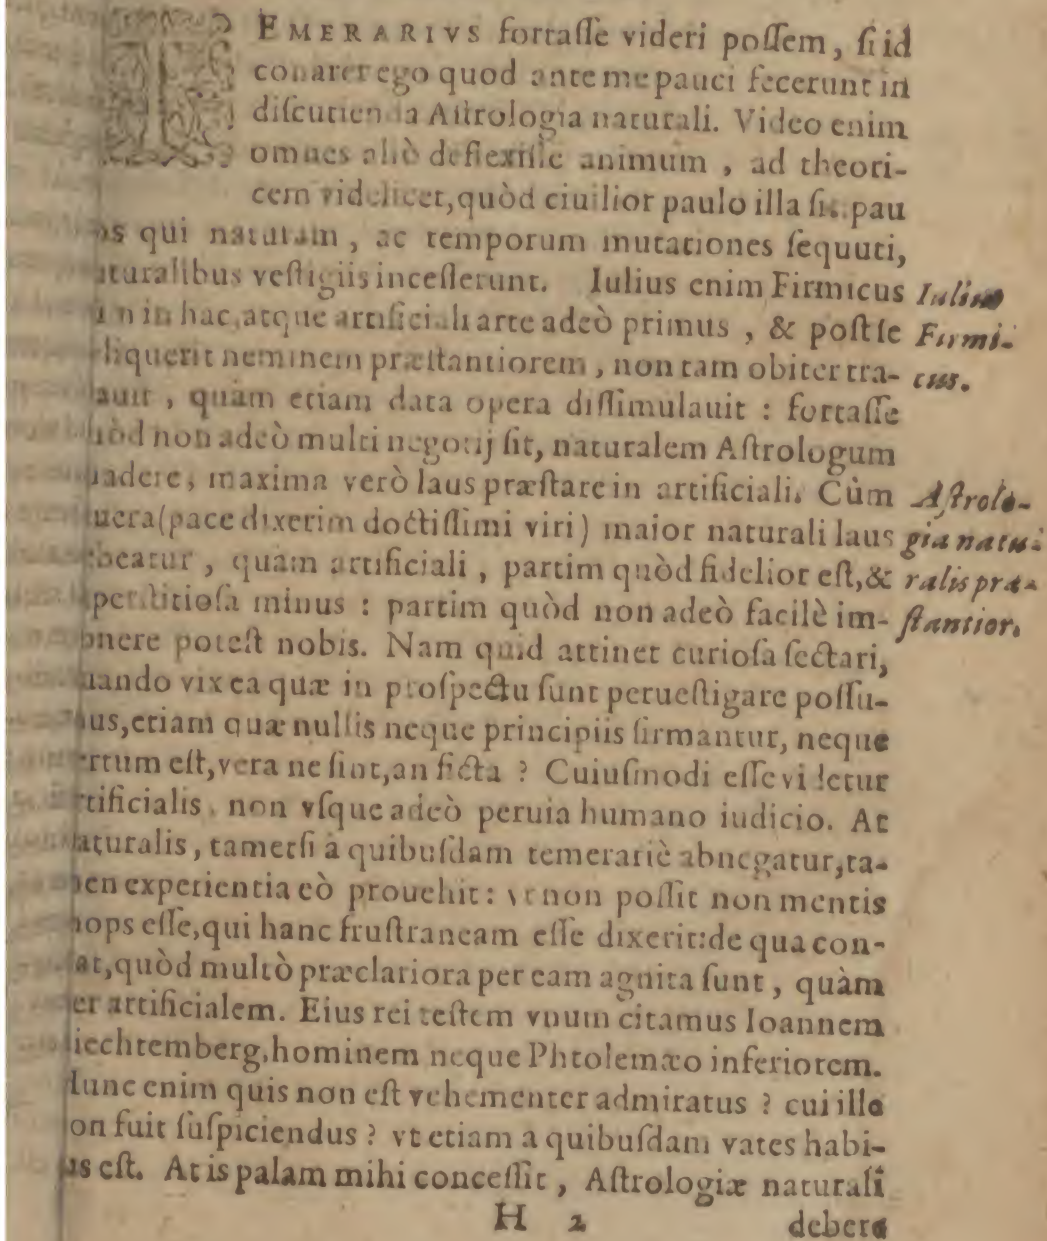 TEMERARIVS fortaſſe videri poſſem, ſi id
conarer ego quod ante me pauci fecerunt in
diſcutienda Aſtrologia naturali. Video enim
omnes aliò deflexiſſe animum, ad theori-
cem videlicet, quòd ciuilior paulo illa ſit. pau
os qui naturam, ac temporum mutationes ſequuti,
aturalibus veſtigiis inceſſerunt. Iulius enim Firmicus
in hac, atque artificiali arte adeò primus, & poſt ſe
liquerit neminem præſtantiorem, non tam obiter tra-
auit, quàm etiam data opera diſſimulauit : fortaſſe
uòd non adeò multi negotij ſit, naturalem Aſtrologum
uadere, maxima verò laus præſtare in artificiali. Cùm
uera (pace dixerim doctiſſimi viri) maior naturali laus
ebeatur, quàm artificiali, partim quòd fidelior eſt, &
perſtitioſa minus : partim quòd non adeò facilè im-
onere poteſt nobis. Nam quid attinet curioſa ſectari,
uando vix ea quæ in proſpectu ſunt perueſtigare poſſu-
us, etiam quæ nullis neque principiis firmantur, neque
ertum eſt, vera ne ſint, an ficta ? Cuiuſmodi eſſe videtur
rtificialis, non vſque adeò peruia humano iudicio. At
aturalis, tametſi à quibuſdam temerariè abnegatur, ta-
en experientia eò prouehit : vt non poſſit non mentis
nops eſſe, qui hanc fruſtraneam eſſe dixerit: de qua con-
at, quòd multò præclariora per eam agnita ſunt, quàm
er artificialem. Eius rei teſtem vnum citamus Ioannem
iechtemberg, hominem neque Phtolemæo inferiorem.
Hunc enim quis non eſt vehementer admiratus ? cui ille
on fuit ſuſpiciendus ? vt etiam a quibuſdam vates habi-
us eſt. At is palam mihi conceſſit, Aſtrologiæ naturali
H 2 debere
Iulius
Firmi-
cus.
Aſtrolo-
gia natu-
ralis præ-
ſtantior.